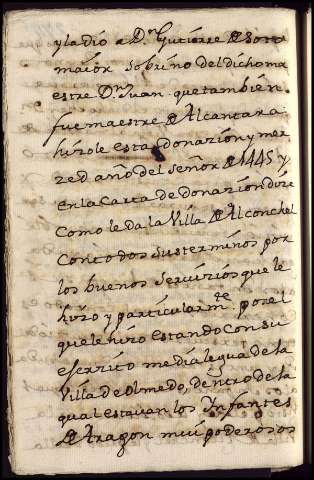 y la dio a D.n Gutierre de Soto
maior sobrino del dicho ma
estre D.n Juan. que tambien
fue maestre de Alcantara.
hizole esta donazion y mer
zed año del señor de 1445 y
en la Carta de donazion dize
Como le da la Villa de Alconchel
Con todos sus terminos por
los buenos servizios que le
hizo y particularm.te por el
que le hizo estando con su
exerzito media legua de la
Villa de Olmedo, dentro de la
qual estavan los Infantes
de Aragon mui poderosos